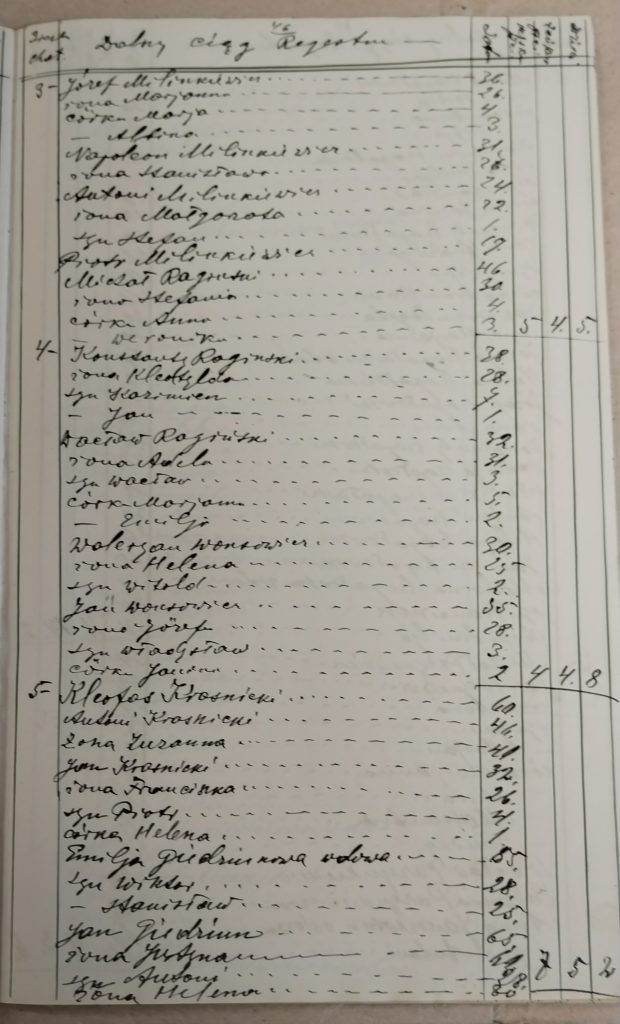 46
Dalny ciąg Regestru
3 - Józef Milinkiewicz 36.
żona Marjanna 26.
córka Marja 4.
— Albina 3.
Napoleon Milinkiewicz 31.
żona Stanisława 26.
Antoni Milinkiewicz 24.
żona Małgorata 22.
syn Stefan 1.
Piotr Milinkiewicz 17.
Michał Raginski 46.
żona Stefania 30
córka Anna 4.
— Weronika 3. 5 4. 5.
4 - Konstanty Raginski 38.
żona Klotylda 28.
syn Kazimierz
— Jan 1.
Wacław Raginski 32.
żona Adela 31.
syn Wacław 3.
córka Marjanna 5.
— Emilja 2.
Waleryan Wonsowicz 30.
żona Helena 25
syn Witold 2.
Jan Wonsowicz 35.
żona Józef 28.
syn Władysław 3.
córka Janina 2 4 4. 8
5 - Kleofas Krasnicki 60.
Antoni Krasnicki 46.
Żona Zuzanna 41.
Jan Krasnicki 32.
żona Franciszka 26.
syn Piotr 4.
córka Helena 1.
Emilja Giedziunowa wdowa 55.
syn Wiktor 28.
— Stanisław 25.
Jan Giedziun 65.
żona Justyna 5 2
syn Antoni
żona Helena 30